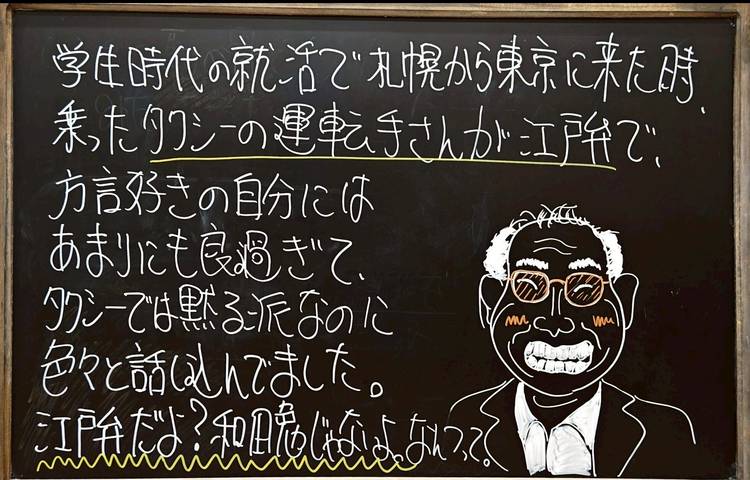 学生時代の就活で札幌から東京に来た時、
乗ったタクシーの運転手さんが江戸弁で、
方言好きの自分には
あまりにも良過ぎて、
タクシーでは黙る派なのに
色々と話し込んでました。
江戸弁だよ?和田勉じゃないよ。なんつって。